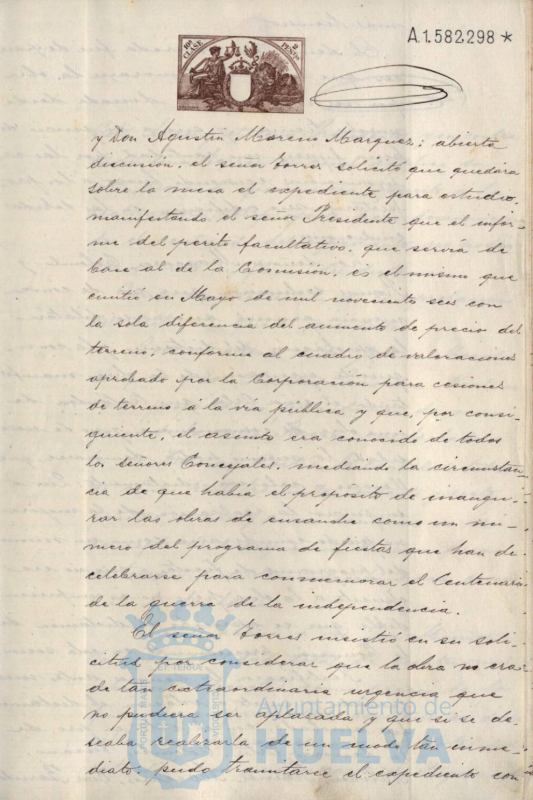 10ª CLASE 2 PENTˢ
A.1.582298 *
y Don Agustin Moreno Marquez; abierta
discusión, el señor Torres solicitó que quedara
sobre la mesa el expediente para estudio,
manifestando el señor Presidente que el infor-
me del perito facultativo, que servía de
base al de la Comisión, es el mismo que
emitió en Mayo de mil novecientos seis con
la sola diferencia del aumento de precio del
terreno, conforme al cuadro de valoraciones
aprobado por la Corporación para cesiones
de terreno á la vía pública y que, por consi-
guiente, el asunto era conocido de todos
los señores Concejales, mediando la circunstan-
cia de que había el propósito de inaugu-
rar las obras de ensanche como un nú-
mero del programa de fiestas que han de
celebrarse para conmemorar el Centenario
de la guerra de la independencia.
El señor Torres insistió en su soli-
citud por considerar que la obra no era
de tan extraordinaria urgencia que
no pudiera ser aplazada y que si se de-
seaba realizarla de un modo tan inme-
diato, pudo tramitarse el expediente con
Ayuntamiento de
HUELVA